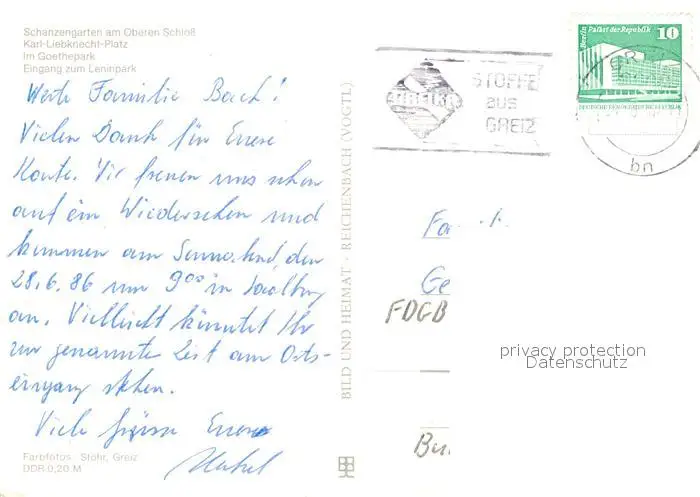 Schanzengarten am Oberen Schloß
Karl-Liebknecht-Platz
Im Goethepark
Eingang zum Leninpark
Werte Familie Bach!
Vielen Dank für Euere
Karte. Wir freuen uns schon
auf ein Wiedersehen und
kommen am Sonnabend, den
28.6.86 um 9⁰⁰ in
an. Vielleicht könntet Ihr
zur genannten Zeit am Orts-
eingang stehen.
Viele Grüsse Euere
Farbfotos: Stöhr, Greiz
DDR 0,20 M
BILD UND HEIMAT · REICHENBACH (VOGTL)
STOFFE
aus
GREIZ
Berlin Palast der Republik
10
DEUTSCHE DEMOKRATISCHE REPUBLIK
bn
Fa
Ge
FDGB
privacy protection
Datenschutz